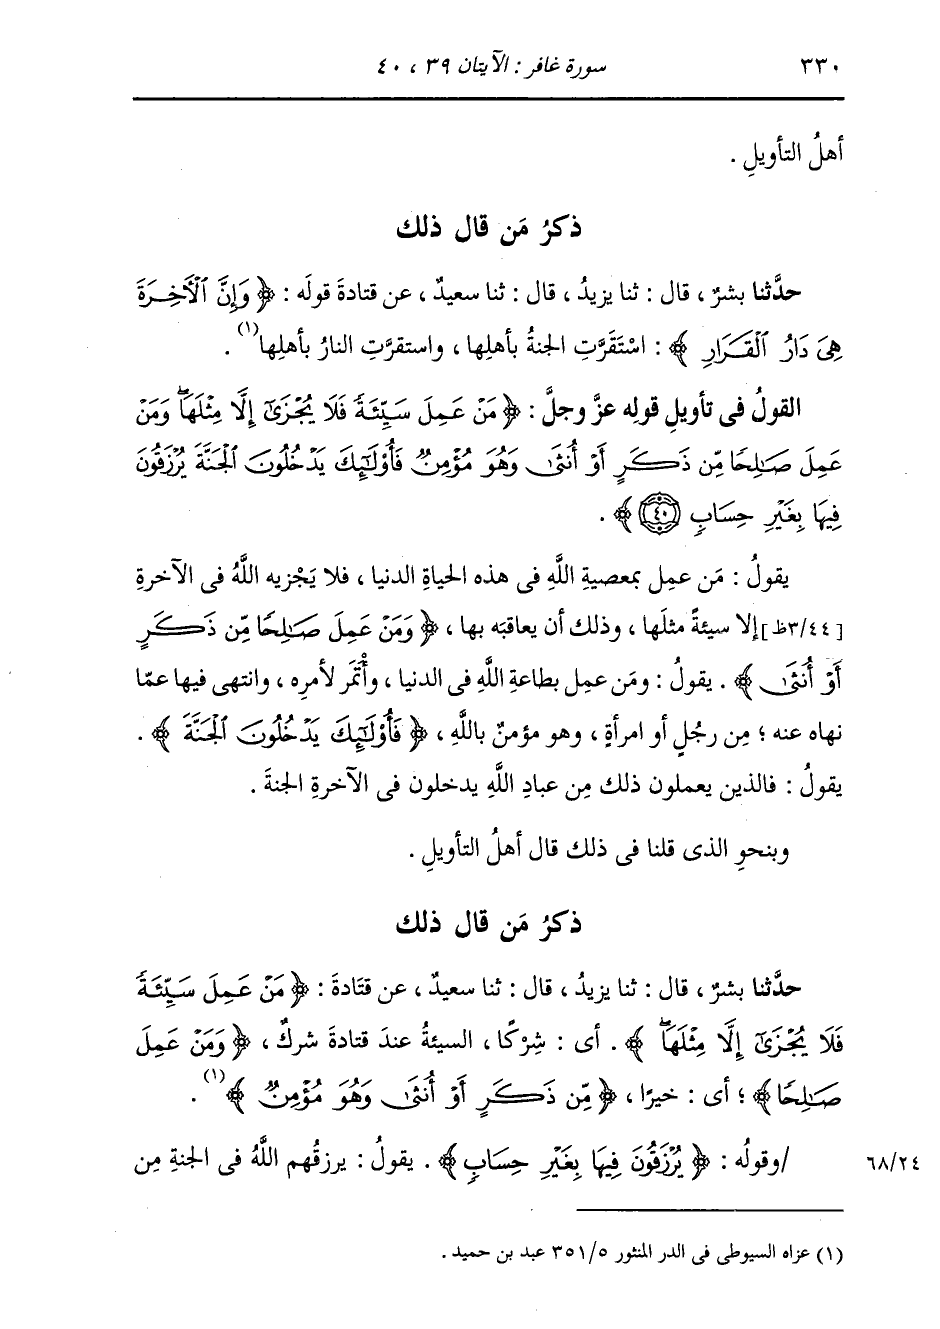 ٣٣٠ سورة غافر : الآيتان ٣٩ ، ٤٠
أهلُ التأويلِ .
ذكرُ مَن قال ذلك
حدَّثنا بشرٌ ، قال : ثنا يزيدُ ، قال : ثنا سعيدٌ ، عن قتادةَ قولَه : ﴿ وَإِنَّ ٱلْأَخِرَةَ
هِىَ دَارُ ٱلْقَرَارِ ﴾ : اسْتَقَرَّتِ الجنةُ بأهلِها ، واستقرَّتِ النارُ بأهلِها(١) .
القولُ فى تأويلِ قولِه عزَّ وجلَّ : ﴿ مَنْ عَمِلَ سَيِّئَةً فَلَا يُجْزَىٰٓ إِلَّا مِثْلَهَا ۖ وَمَنْ
عَمِلَ صَٰلِحًا مِّن ذَكَرٍ أَوْ أُنثَىٰ وَهُوَ مُؤْمِنٌ فَأُو۟لَٰٓئِكَ يَدْخُلُونَ ٱلْجَنَّةَ يُرْزَقُونَ
فِيهَا بِغَيْرِ حِسَابٍ ۝٤٠ ﴾ .
يقولُ : مَن عمِل بمعصيةِ اللَّهِ فى هذه الحياةِ الدنيا ، فلا يَجْزيه اللَّهُ فى الآخرةِ
[٣/٤٤ظ] إلا سيئةً مثلَها ، وذلك أن يعاقبَه بها ، ﴿ وَمَنْ عَمِلَ صَٰلِحًا مِّن ذَكَرٍ
أَوْ أُنثَىٰ ﴾ . يقولُ : ومَن عمِل بطاعةِ اللَّهِ فى الدنيا ، وأْتَمَر لأمرِه ، وانتهى فيها عمّا
نهاه عنه ؛ مِن رجُلٍ أو امرأةٍ ، وهو مؤمنٌ باللَّهِ ، ﴿ فَأُو۟لَٰٓئِكَ يَدْخُلُونَ ٱلْجَنَّةَ ﴾ .
يقولُ : فالذين يعملون ذلك مِن عبادِ اللَّهِ يدخلون فى الآخرةِ الجنةَ .
وبنحوِ الذى قلنا فى ذلك قال أهلُ التأويلِ .
ذكرُ مَن قال ذلك
حدَّثنا بشرٌ ، قال : ثنا يزيدُ ، قال : ثنا سعيدٌ ، عن قتَادةَ : ﴿ مَنْ عَمِلَ سَيِّئَةً
فَلَا يُجْزَىٰٓ إِلَّا مِثْلَهَا ۖ ﴾ . أى : شِرْكًا ، السيئةُ عندَ قتادةَ شركٌ ، ﴿ وَمَنْ عَمِلَ
صَٰلِحًا ﴾ ؛ أى : خيرًا ، ﴿ مِّن ذَكَرٍ أَوْ أُنثَىٰ وَهُوَ مُؤْمِنٌ ﴾(١) .
٦٨/٢٤ /وقولُه : ﴿ يُرْزَقُونَ فِيهَا بِغَيْرِ حِسَابٍ ﴾ . يقولُ : يرزقُهم اللَّهُ فى الجنةِ مِن
(١) عزاه السيوطى فى الدر المنثور ٣٥١/٥ عبد بن حميد .